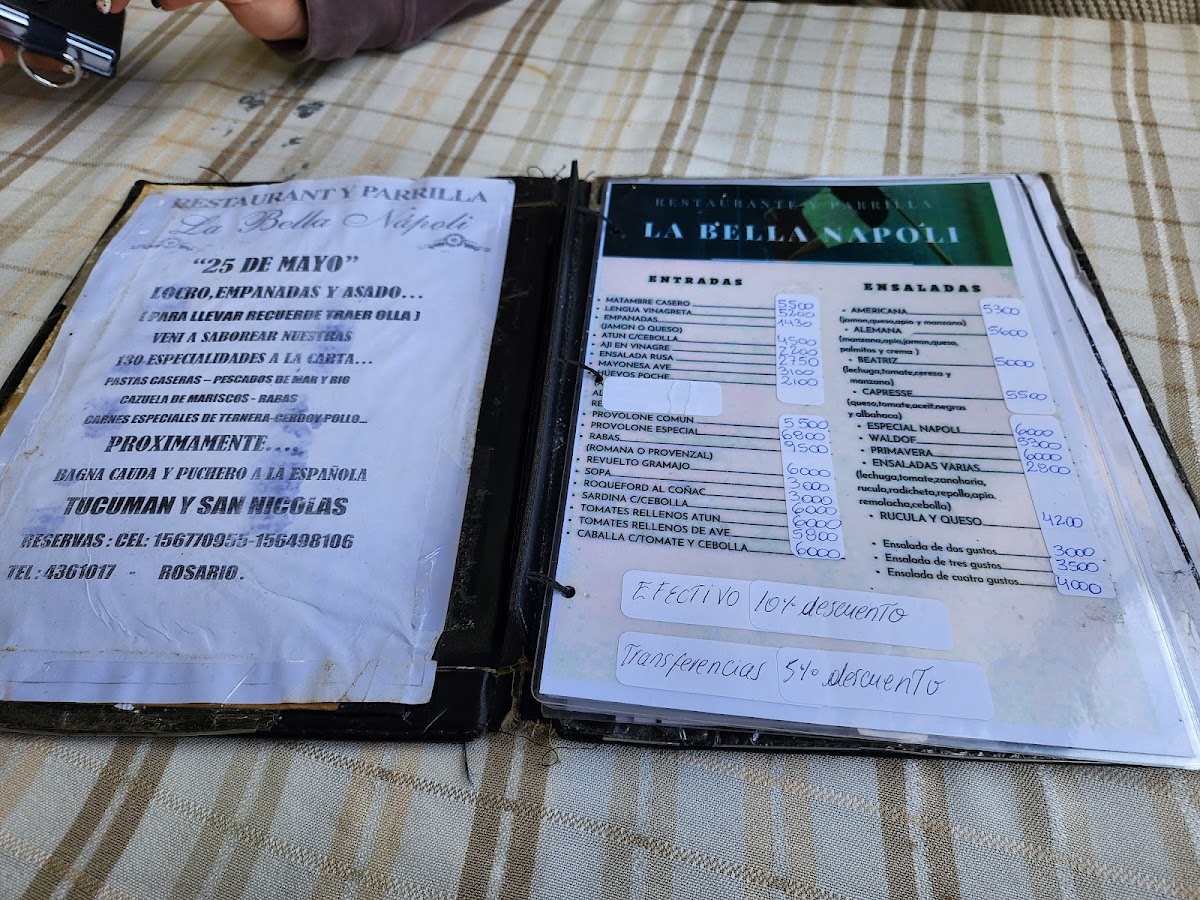 RESTAURANT Y PARRILLA
La Bella Nápoli
"25 DE MAYO"
LOCRO, EMPANADAS Y ASADO...
( PARA LLEVAR RECUERDE TRAER OLLA )
VENI A SABOREAR NUESTRAS
130 ESPECIALIDADES A LA CARTA...
PASTAS CASERAS – PESCADOS DE MAR Y RIO
CAZUELA DE MARISCOS - RABAS
CARNES ESPECIALES DE TERNERA-CERDOY-POLLO...
PROXIMAMENTE....
BAGNA CAUDA Y PUCHERO A LA ESPAÑOLA
TUCUMAN Y SAN NICOLAS
RESERVAS : CEL: 156770955-156498106
TEL : 4361017 - ROSARIO.
RESTAURANTE Y PARRILLA
LA BELLA NAPOLI
ENTRADAS
• MATAMBRE CASERO 5500
• LENGUA VINAGRETA 5200
• EMPANADAS 1430
(JAMON O QUESO)
• ATUN C/CEBOLLA 4500
• AJI EN VINAGRE 2200
• ENSALADA RUSA 2750
• MAYONESA AVE 3100
• HUEVOS POCHE 2100
• PROVOLONE COMUN 5500
• PROVOLONE ESPECIAL 6800
• RABAS 9500
(ROMANA O PROVENZAL)
• REVUELTO GRAMAJO 6000
• SOPA 3000
• ROQUEFORD AL COÑAC 3000
• SARDINA C/CEBOLLA 6000
• TOMATES RELLENOS ATUN 6000
• TOMATES RELLENOS DE AVE 5800
• CABALLA C/TOMATE Y CEBOLLA 6000
ENSALADAS
• AMERICANA 5300
(jamon,queso,apio y manzana)
• ALEMANA 5600
(manzana,apio,jamon,queso,
palmitos y crema )
• BEATRIZ 5000
(lechuga,tomate,cereza y
manzana)
• CAPRESSE 5500
(queso,tomate,aceit.negras
y albahaca)
• ESPECIAL NAPOLI 6000
• WALDOF 5300
• PRIMAVERA 6000
• ENSALADAS VARIAS 2800
(lechuga,tomate,zanahoria,
rucula,radicheta,repollo,apio,
remolacha,cebolla)
• RUCULA Y QUESO 4200
• Ensalada de dos gustos 3000
• Ensalada de tres gustos 3500
• Ensalada de cuatro gustos 4000
EFECTIVO 10% descuento
Transferencias 5% descuento